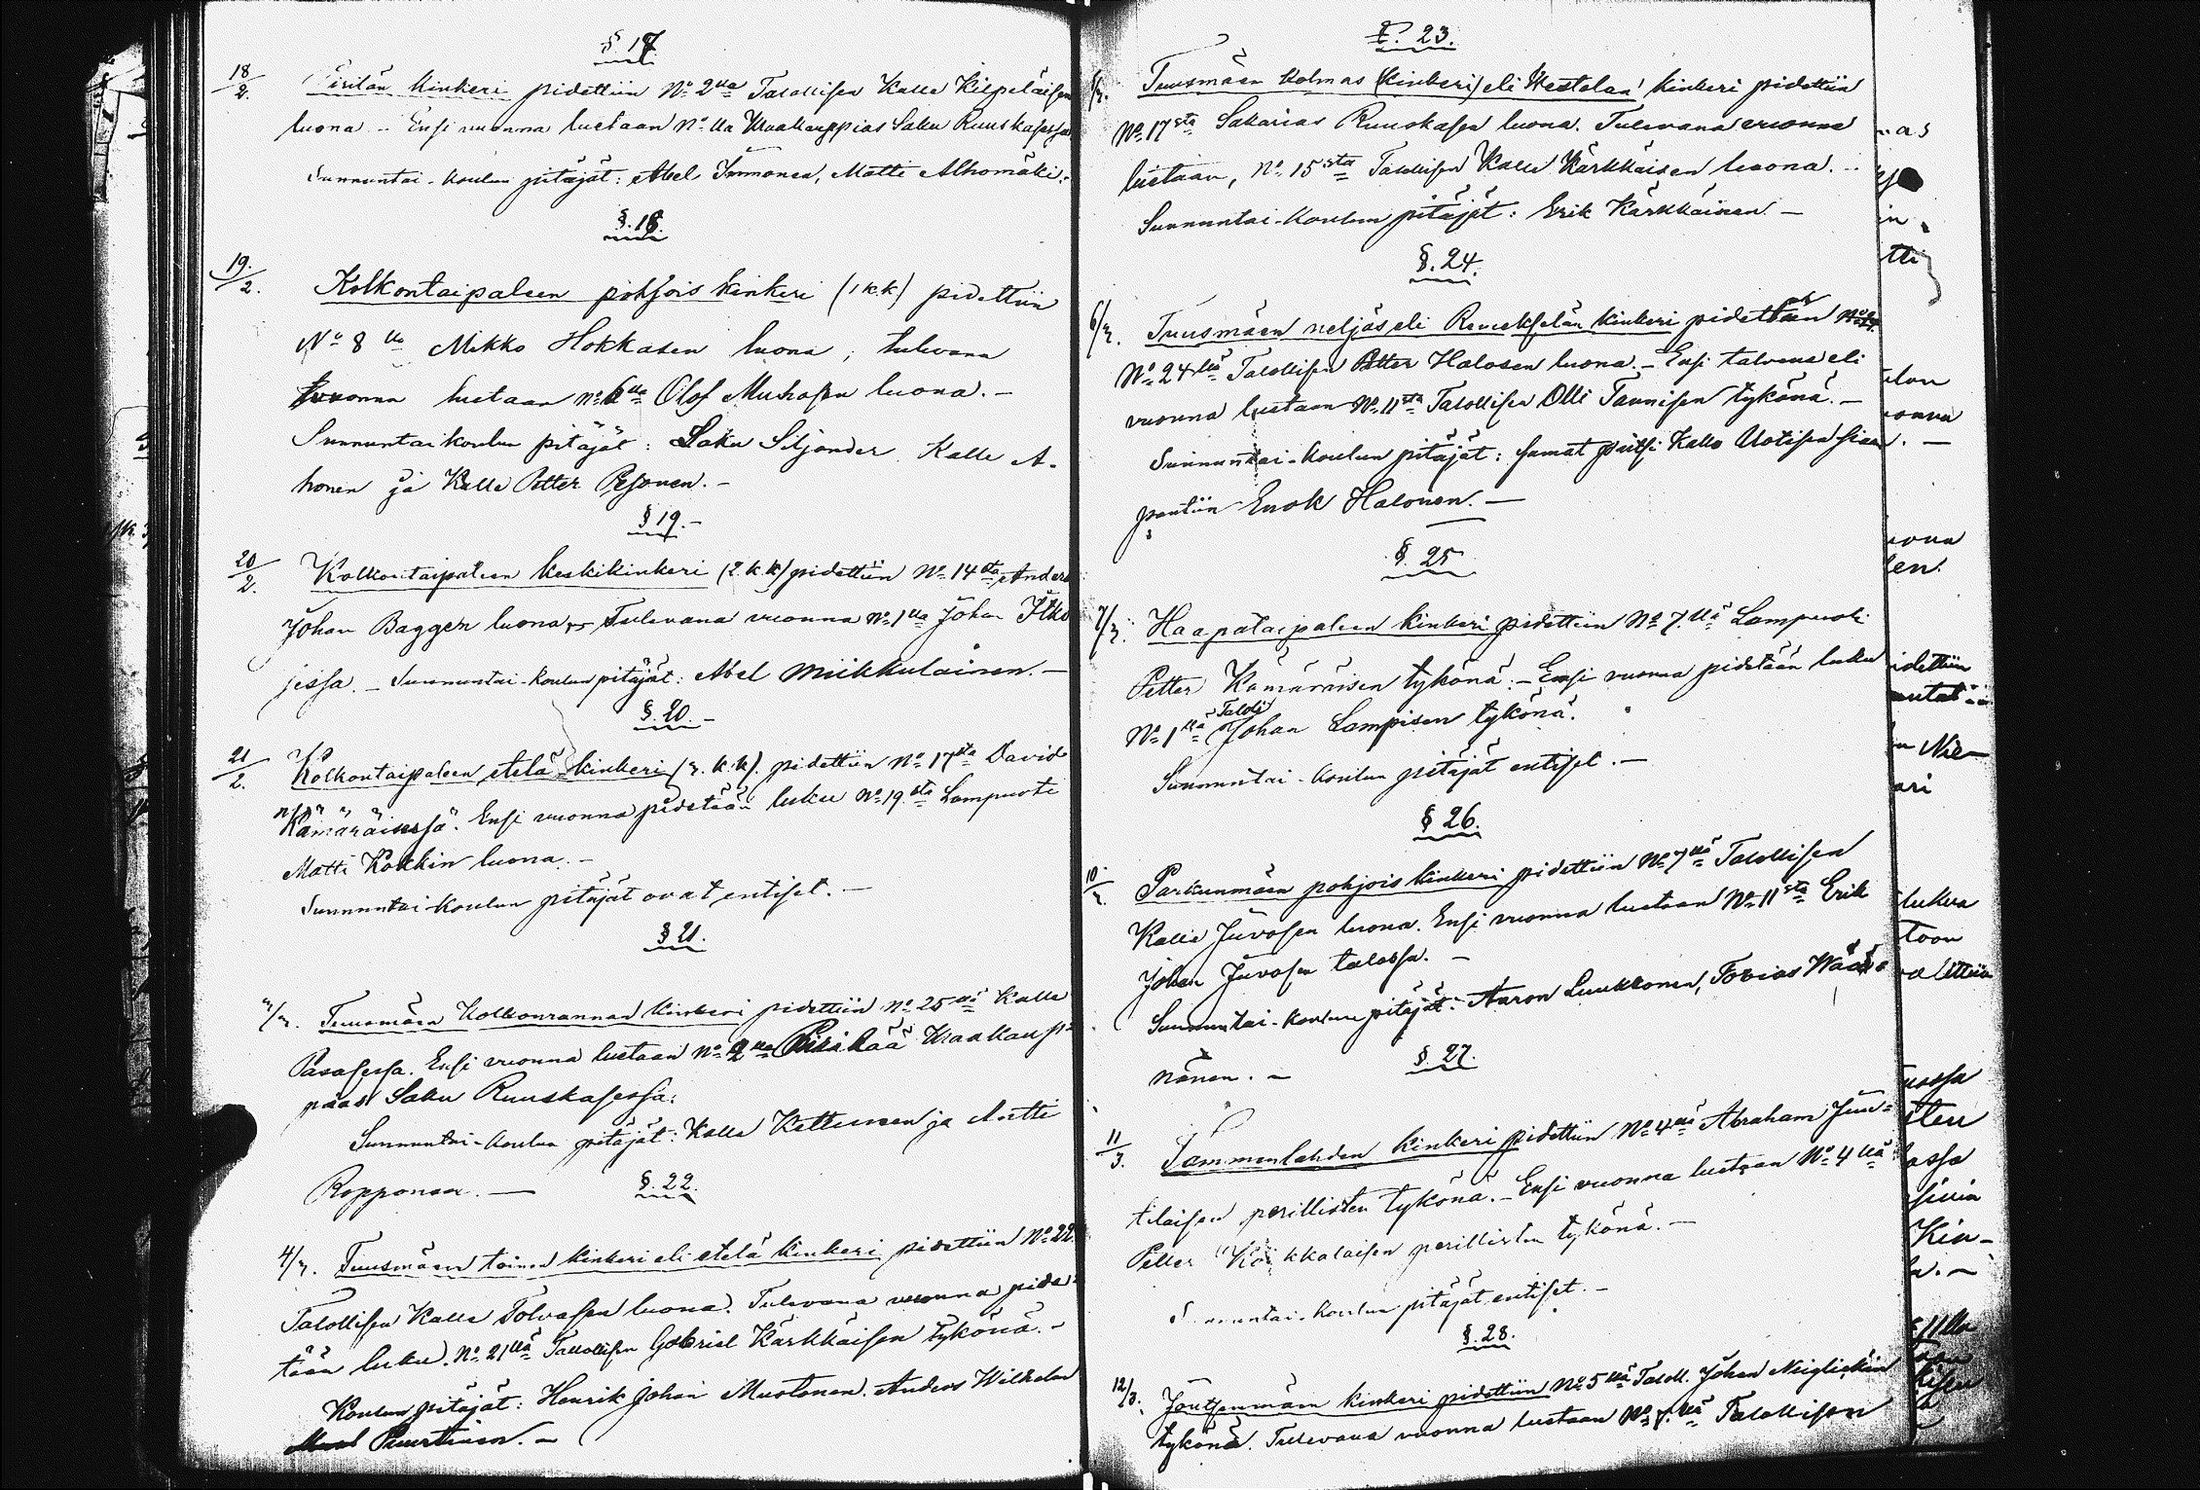 §. 17
18/2. kinkeri pidettiin No 2lla Talollisen Kalle Kilpeläisen
luona. Ensi vuonna luetaan No lla Maakauppias Saku Ruuskasessa
Sunnuntai-koulun pitäjät: Abel Immonen, Matti Alhomäki.
§. 18.
19./2. Kolkontaipaleen pohjois kinkeri (1 k.k) pidettiin
No 8lla Mikko Hokkasen luona; tulevana
vuonna luetaan No 6lla Olof Muhosen luona. –
Sunnuntai koulun pitäjät: Saku Siljander Kalle A-
honen ja Kalle Petter Pesonen. –
§ 19. –
20/2. Kolkontaipaleen keskikinkeri (2. k.k) pidettiin No 14sta Anders
Johan Baggen luona Tulevana vuonna No 1llä Johan Itko
jessa. – Sunnuntai-koulun pitäjät: Abel Miikkulainen. –
§. 20. –
21/2. Kolkontaipaleen etelä kinkeri (3. k.k). pidettiin No 17sta David
Kämäräisessä. Ensi vuonna pidetään luku No 19sta Lampuoti
Matti Kokkin luona. –
Sunnuntai-koulun pitäjät ovat entiset. –
§ 21.
3/3. Tuusmäen Kolkonrannan kinkeri pidettiin No 25llä Kalle
Pasasessa. Ensi vuonna luetaan No 2lla Maakaup=
pias Saku Ruuskasessa.
Sunnuntai-koulun pitäjät: Kalle Kettunen ja Antti
Ropponen. –
§. 22.
4/3. Tuusmäen toinen kinkeri eli etelä kinkeri pidettiin No 22
Talollisen Kalle Tolvasen luona. Tulevana vuonna pide=
tään luku No 21llä Talollisen Gabriel Kärkkäisen tykönä. –
Koulun pitäjät: Henrik Johan Mustonen. Anders Wilhelm
Puurtinen. –
§. 23.
5/3. Tuusmäen kolmas (kinkeri) eli Westelan kinkeri pidettiin
No 17sta Sakarias Ruuskasen luona. Tulevana vuonna
luetaan, No 15sta Talollisen Kalle Kärkkäisen luona. –
Sunnuntai-koulun pitäjät: Erik Kärkkäinen –
§. 24.
6/3. Tuusmäen neljäs eli kinkeri pidettiin
No 24llä Talollisen Petter Halosen luona. – Ensi talvena eli
vuonna luetaan No 11sta Talollisen Olli Taunisen tykönä. –
Sunnuntai-koulun pitäjät: samat paitsi Kalle Uotisen siaan
pantiin Enok Halonen. –
§. 25
7/3. Haapataipaleen kinkeri pidettiin No 7.llä Lampuoti
Petter Kämäräisen tykönä. – Ensi vuonna pidetään luku
No 1llä Talol. Johan Lampisen tykönä.
Sunnuntai-koulun pitäjät entiset. –
§ 26.
10/3. Parkunmäen pohjois kinkeri pidettiin No 7llä Talollisen
Kalle Juvosen luona. Ensi vuonna luetaan No 11sta Erik
Johan Juvosen talossa. –
Sunnuntai-koulun pitäjät: Aaron Luukkonen, Tobias Wää=
nänen. –
§. 27.
11/3. Tammenlahden kinkeri pidettiin No 4llä Abraham Juu=
tilaisen perillisten tykönä. – Ensi vuonna luetaan No 4llä
Petter perillisten tykönä. –
Sunnuntai-koulun pitäjät entiset. –
§. 28.
12/3. kinkeri pidettiin No 5llä Taloll. Johan
tykönä. Tulevana vuonna luetaan No 7.llä Talollisen